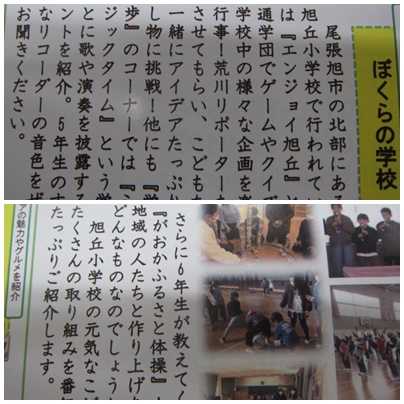 ぼくらの学校
尾張旭市の北部にある
旭丘小学校で行われてい
は『エンジョイ旭丘』と
通学団でゲームやクイズ
学校中の様々な企画を楽
行事！荒川リポーターも
させてもらい、こどもた
一緒にアイデアたっぷり
し物に挑戦！他にも『学
歩』のコーナーでは『ミ
ジックタイム』という学
とに歌や演奏を披露する
ントを紹介。5年生のす
なリコーダーの音色をぜ
お聞きください。
さらに6年生が教えてく
『がおかふるさと体操』
地域の人たちと作り上げた
どんなものなのでしょう
旭丘小学校の元気なこど
たくさんの取り組みを番組
たっぷりご紹介します。
アの魅力やグルメを紹介